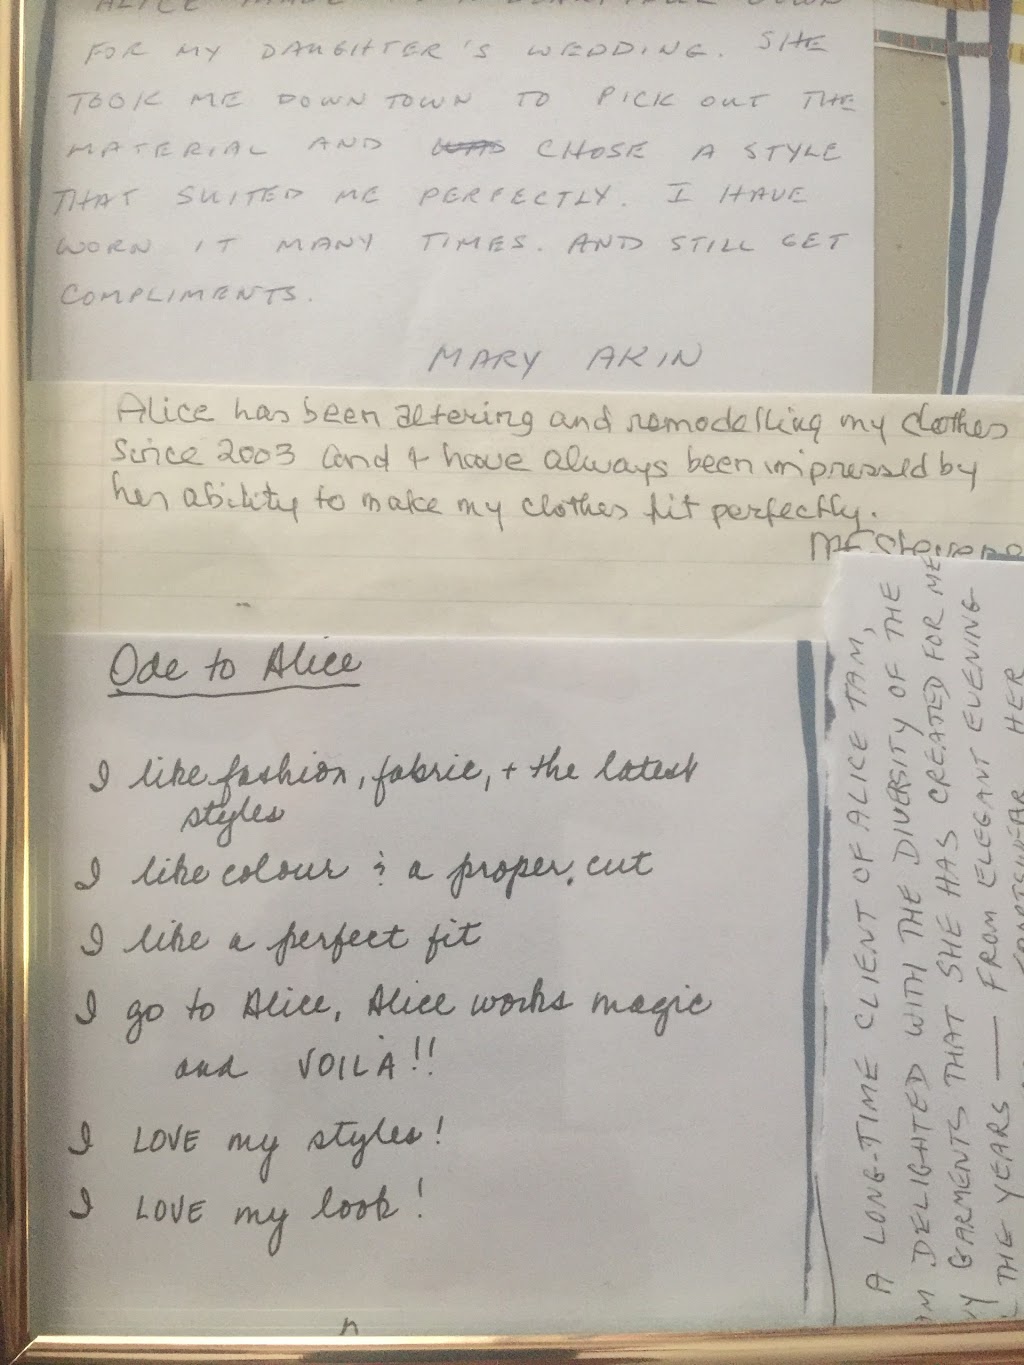 ALICE MADE
FOR MY DAUGHTER'S WEDDING. SHE
TOOK ME DOWNTOWN TO PICK OUT THE
MATERIAL AND WAS CHOSE A STYLE
THAT SUITED ME PERFECTLY. I HAVE
WORN IT MANY TIMES. AND STILL GET
COMPLIMENTS.
MARY AKIN
Alice has been altering and remodelling my clothes
since 2003 and I have always been impressed by
her ability to make my clothes fit perfectly.
Ode to Alice
I like fashion, fabric, + the latest
styles
I like colour & a proper cut
I like a perfect fit
I go to Alice, Alice works magic
and VOILÀ!!
I LOVE my styles!
I LOVE my look!
A LONG-TIME CLIENT OF ALICE TAM,
DELIGHTED WITH THE DIVERSITY OF THE
GARMENTS THAT SHE HAS CREATED FOR ME
THE YEARS — FROM ELEGANT EVENING
SPORTSWEAR. HER